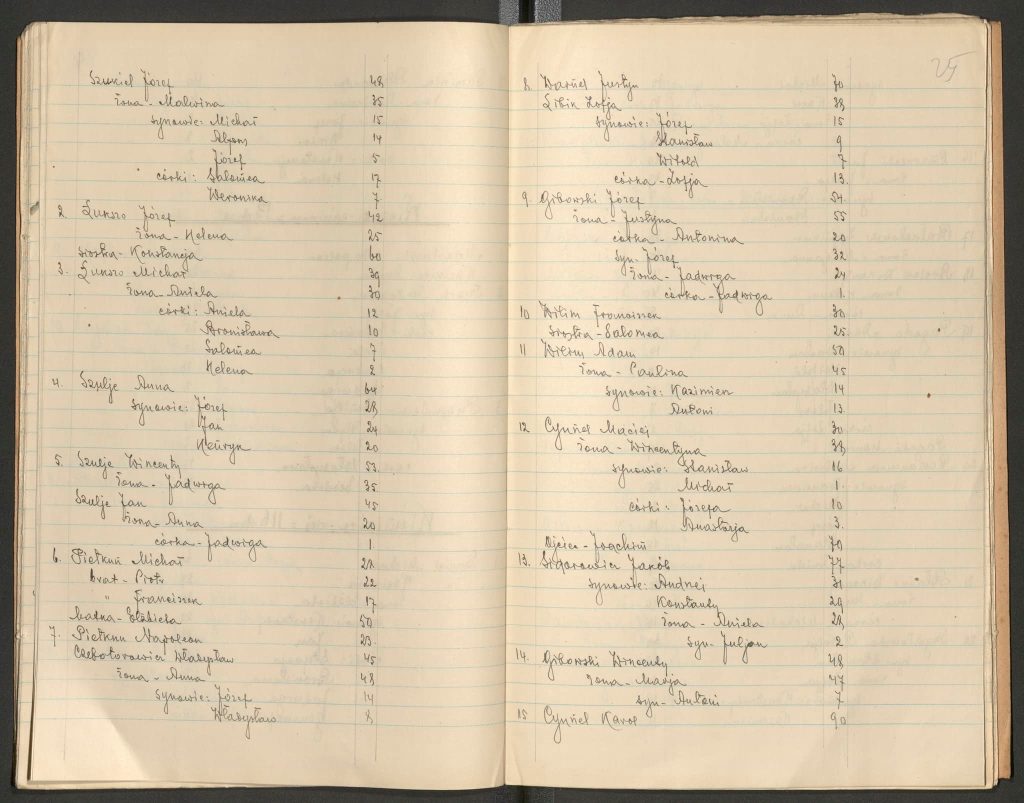 Szukiel Józef 48
żona - Malwina 35
synowie: Michał 15
Alfons 14
Józef 5
córki: Salomea 17
Weronika 7
2. Łukszo Józef 42
żona - Helena 25
siostra - Konstancja 60
3. Łukszo Michał 39
żona - Aniela 30
córki: Aniela 12
Bronisława 10
Salomea 7
Helena 2
4. Szulje Anna 64
synowie: Józef 28
Jan 24
Henryk 20
5. Szulje Wincenty 53
żona - Jadwiga 35
Szulje Jan 45
żona - Anna 20
córka - Jadwiga 1
6. Pietkun Michał
brat - Piotr 22
" Franciszek 17
Matka - Elżbieta 50
7. Pietkun Napoleon 23
Czebotorowicz Władysław 45
żona - Anna 48
synowie: Józef 14
Władysław 8
25
8. Justyn 70
Zofja 38
synowie: Józef 15
Stanisław 9
Witold 7
córka - Zofja 13
9. Gibowski Józef 54
żona - Justyna 55
córka - Antonina 20
syn - Józef 32
żona - Jadwiga 24
córka - Jadwiga 1
10 Wilim Franciszek 30
siostra - Salomea 25
11 Adam 50
żona - Paulina 45
synowie: Kazimierz 14
Antoni 13
12 Cynňel Maciej 30
żona - Wincentyna 38
synowie: Stanisław 16
Michał 1
córki: Józefa 10
Anastazja 3
Ojciec - Joachim 70
13. Sidorowicz Jakób 77
synowie: Andrzej 31
Konstanty 29
żona - Aniela 28
syn - Juljan 2
14. Gibowski Wincenty 48
żona - Marja 47
syn - Antoni 7
15 Cynňel Karol 90